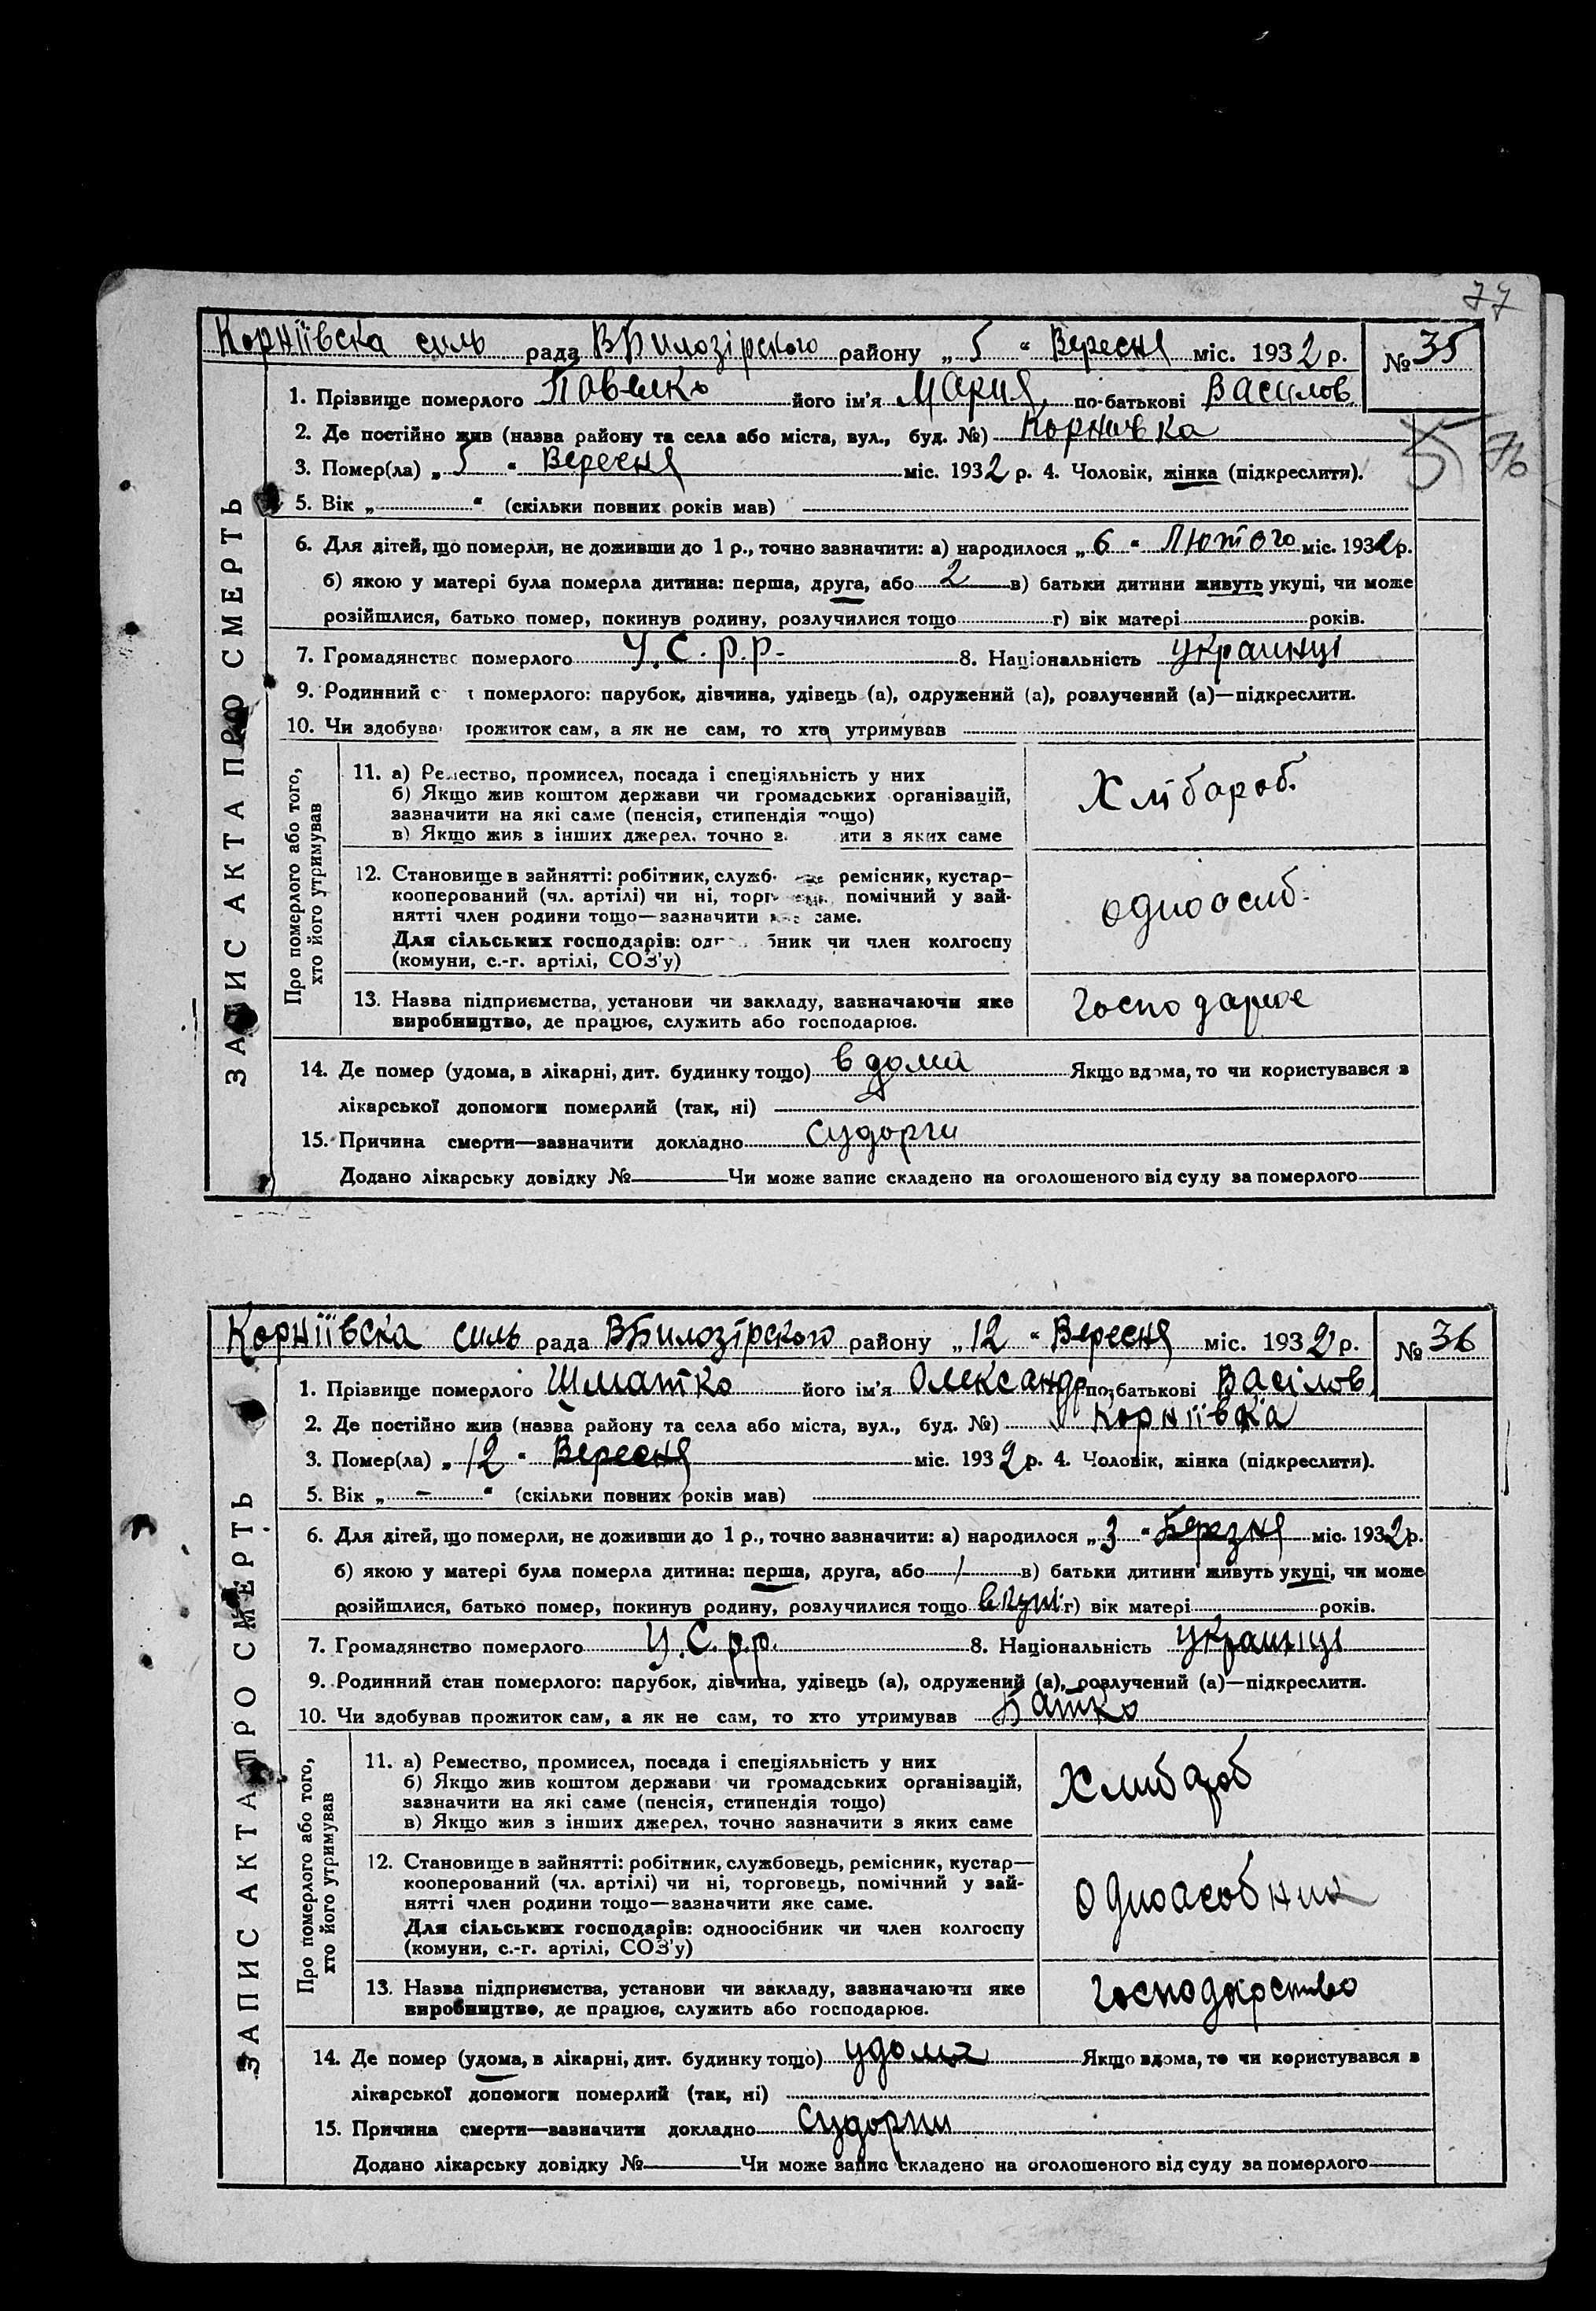 77
Корніївска силь рада ВБилозірского району „ 5 “ Вересня міс. 1932 р. № 35
1. Прізвище померлого Павелко його ім'я Мария по-батькові Василов
2. Де постійно жив (назва району та села або міста, вул., буд. №) Корниевка
3. Помер(ла) „ 5 “ Вересня міс. 1932 р. 4. Чоловік, жінка (підкреслити).
5. Вік „ “ (скільки повних років мав)
6. Для дітей, що померли, не доживши до 1 р., точно зазначити: а) народилося „ 6 “ Лютого міс. 1932 р.
б) якою у матері була померла дитина: перша, друга, або 2 в) батьки дитини живуть укупі, чи може
розійшлися, батько помер, покинув родину, розлучилися тощо г) вік матері років.
7. Громадянство померлого У.С.р.р. 8. Національність украинці
9. Родинний с т померлого: парубок, дівчина, удівець (а), одружений (а), розлучений (а)—підкреслити.
10. Чи здобува прожиток сам, а як не сам, то хто утримував
ЗАПИС АКТА ПРО СМЕРТЬ
Про померлого або того,
хто його утримував
11. а) Ремество, промисел, посада і спеціяльність у них
б) Якщо жив коштом держави чи громадських організацій,
зазначити на які саме (пенсія, стипендія тощо)
в) Якщо жив з інших джерел, точно з ити з яких саме
Хлібароб.
12. Становище в зайнятті: робітник, служб ремісник, кустар-
кооперований (чл. артілі) чи ні, торг помічний у зай-
нятті член родини тощо—зазначити саме.
Для сільських господарів: од бник чи член колгоспу
(комуни, с.-г. артілі, СОЗ'у)
одноосиб.
13. Назва підприємства, установи чи закладу, зазначаючи яке
виробництво, де працює, служить або господарює.
14. Де помер (удома, в лікарні, дит. будинку тощо) в доми Якщо вдома, то чи користувався з
лікарської допомоги померлий (так, ні)
15. Причина смерти—зазначити докладно судорги
Додано лікарську довідку № Чи може запис складено на оголошеного від суду за померлого
Корніївска силь рада ВБилозірского району „ 12 “ Вересня міс. 1932 р. № 36
1. Прізвище померлого Шматко його ім'я Олександр по-батькові Васілов
2. Де постійно жив (назва району та села або міста, вул., буд. №) Корніївка
3. Помер(ла) „ 12 “ Вересня міс. 1932 р. 4. Чоловік, жінка (підкреслити).
5. Вік „ – “ (скільки повних років мав)
6. Для дітей, що померли, не доживши до 1 р., точно зазначити: а) народилося „ 3 “ Березня міс. 1932 р.
б) якою у матері була померла дитина: перша, друга, або 1 в) батьки дитини живуть укупі, чи може
розійшлися, батько помер, покинув родину, розлучилися тощо вкупі г) вік матері років.
7. Громадянство померлого У.С.р.р. 8. Національність украинці
9. Родинний стан померлого: парубок, дівчина, удівець (а), одружений (а), розлучений (а)—підкреслити.
10. Чи здобував прожиток сам, а як не сам, то хто утримував Батко
ЗАПИС АКТА ПРО СМЕРТЬ
Про померлого або того,
хто його утримував
11. а) Ремество, промисел, посада і спеціяльність у них
б) Якщо жив коштом держави чи громадських організацій,
зазначити на які саме (пенсія, стипендія тощо)
в) Якщо жив з інших джерел, точно зазначити з яких саме
Хлибароб
12. Становище в зайнятті: робітник, службовець, ремісник, кустар—
кооперований (чл. артілі) чи ні, торговець, помічний у зай-
нятті член родини тощо—зазначити яке саме.
Для сільських господарів: одноосібник чи член колгоспу
(комуни, с.-г. артілі, СОЗ'у)
одноасобник
13. Назва підприємства, установи чи закладу, зазначаючи яке
виробництво, де працює, служить або господарює.
Господарство
14. Де помер (удома, в лікарні, дит. будинку тощо) удома Якщо вдома, то чи користувався з
лікарської допомоги померлий (так, ні)
15. Причина смерти—зазначити докладно судорги
Додано лікарську довідку № Чи може запис складено на оголошеного від суду за померлого